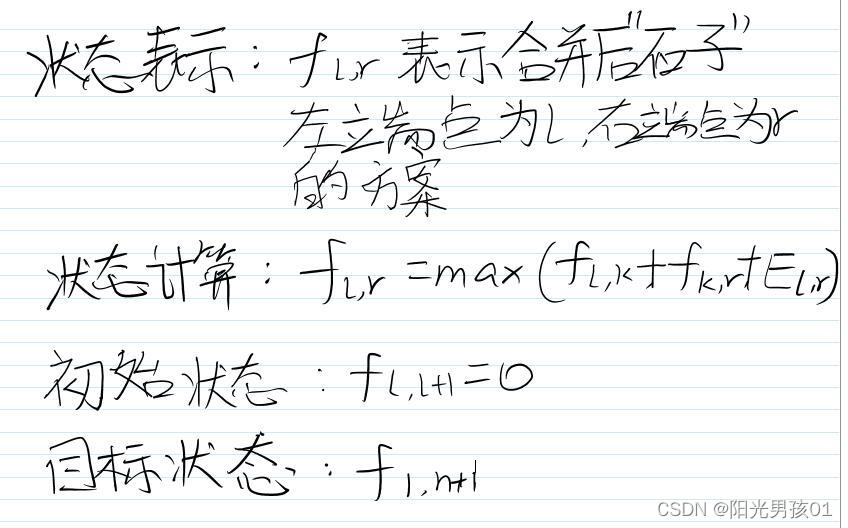 状态表示：f l,r 表示合并后"石子"
左立端点为l,右立端点为r
的方案
状态计算：f l,r =max(f l,k+f k,r+E l,r)
初始状态：f l,l+1=0
目标状态：f 1,n+1
CSDN @阳光男孩01